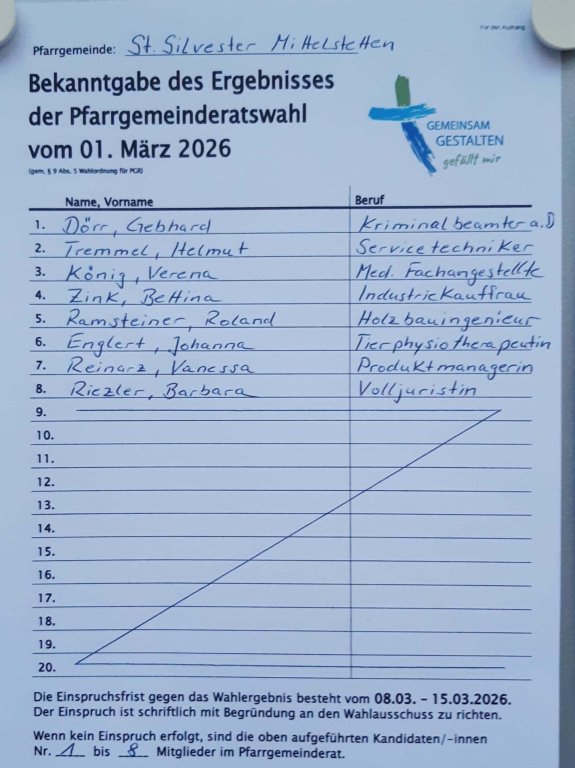 Für den Aushang
Pfarrgemeinde: St. Silvester Mittelstetten
Bekanntgabe des Ergebnisses
der Pfarrgemeinderatswahl
vom 01. März 2026
(gem. § 9 Abs. 5 Wahlordnung für PGR)
GEMEINSAM
GESTALTEN
gefällt mir
Name, Vorname Beruf
1. Dörr, Gebhard Kriminalbeamter a.D
2. Tremmel, Helmut Servicetechniker
3. König, Verena Med. Fachangestellte
4. Zink, Bettina Industriekauffrau
5. Ramsteiner, Roland Holzbauingenieur
6. Englert, Johanna Tierphysiotherapeutin
7. Reinarz, Vanessa Produktmanagerin
8. Riezler, Barbara Volljuristin
9.
10.
11.
12.
13.
14.
15.
16.
17.
18.
19.
20.
Die Einspruchsfrist gegen das Wahlergebnis besteht vom 08.03. – 15.03.2026.
Der Einspruch ist schriftlich mit Begründung an den Wahlausschuss zu richten.
Wenn kein Einspruch erfolgt, sind die oben aufgeführten Kandidaten/-innen
Nr. 1 bis 8 Mitglieder im Pfarrgemeinderat.